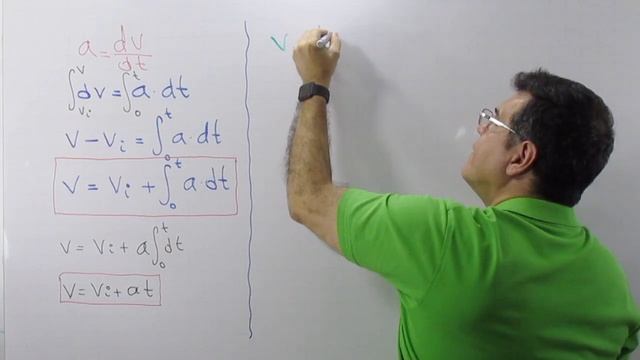 a = dv/dt
∫ᵥᵢᵛ dv = ∫₀ᵗ a · dt
v − vᵢ = ∫₀ᵗ a · dt
v = vᵢ + ∫₀ᵗ a · dt
v = vᵢ + a ∫₀ᵗ dt
v = vᵢ + at
v